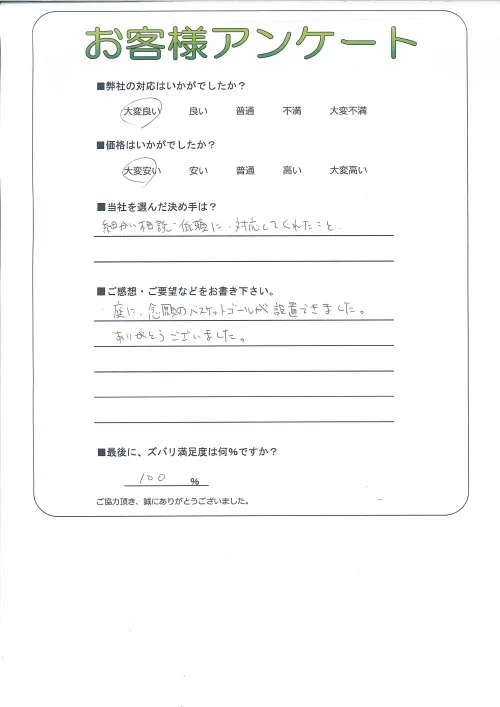 お客様アンケート
■弊社の対応はいかがでしたか？
大変良い 良い 普通 不満 大変不満
■価格はいかがでしたか？
大変安い 安い 普通 高い 大変高い
■当社を選んだ決め手は？
細かい相談・依頼に、対応してくれたこと。
■ご感想・ご要望などをお書き下さい。
庭に、念願のバスケットゴールが設置できました。
ありがとうございました。
■最後に、ズバリ満足度は何%ですか？
100 %
ご協力頂き、誠にありがとうございました。